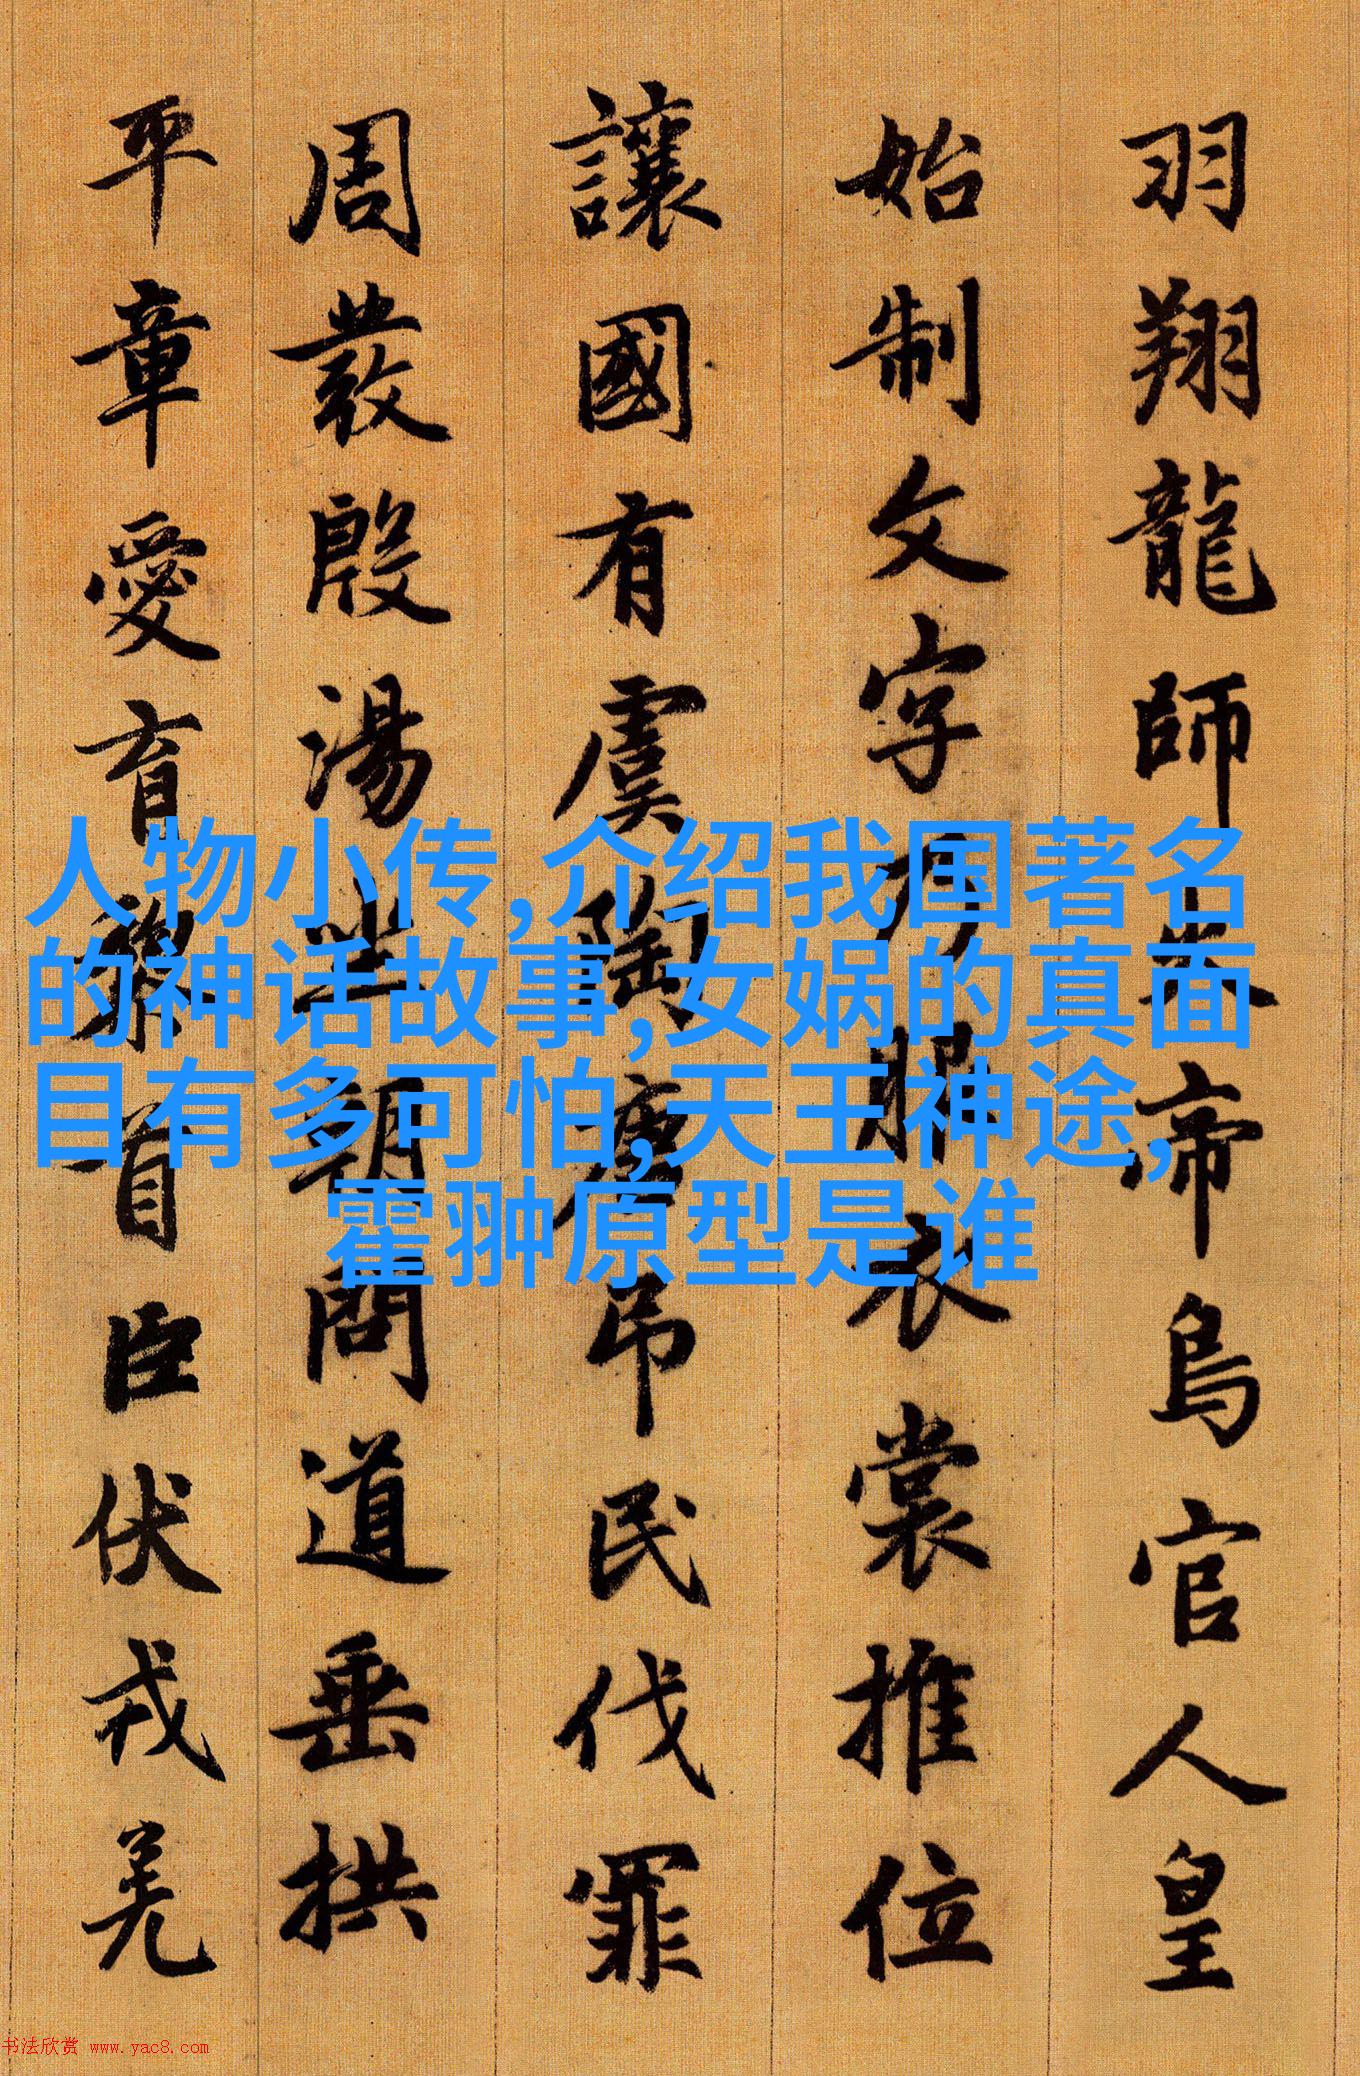 羽翔龍師火帝鳥官人皇
始制文字乃服衣裳推位
讓國有虞陶唐吊民伐罪
周發殷湯坐朝問道垂拱
平章愛育黎首臣伏戎羌
人物小传,介绍我国著名
的神话故事,女娲的真面
目有多可怕,天王神途,
霍翀原型是谁
书法欣赏 www.yac8.com